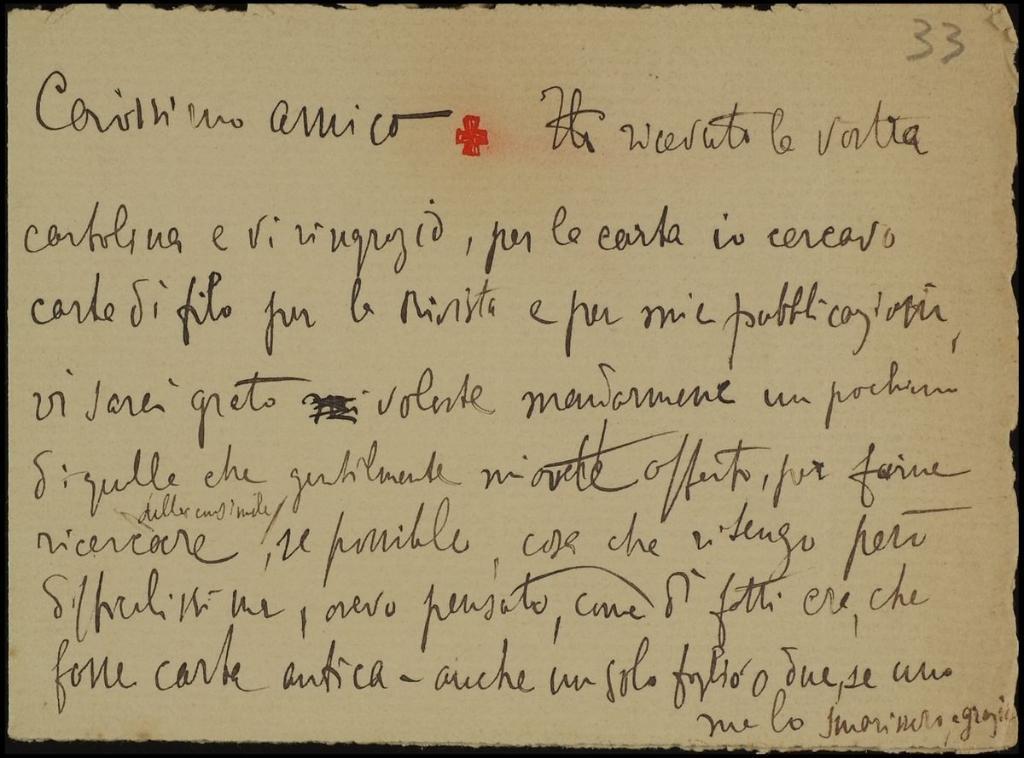 33
Carissimo amico Ho ricevuto la vostra
cartolina e vi ringrazio, per la carta io cercavo
carta di filo per la Rivista e per mie pubblicazioni,
vi sarei grato voleste mandarmene un pochino
di quella che gentilmente mi avete offerto, per farne
della consimile
ricercare, se possibile, cosa che ritengo però
difficilissima, avevo pensato, come di fatti era, che
fosse carta antica - anche un solo foglio o due, se uno
me lo smarissero, e grazie